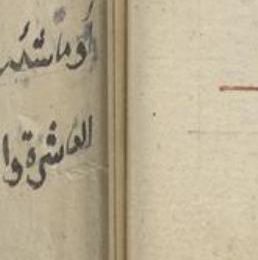 أو ما شئت
العاشرة وا